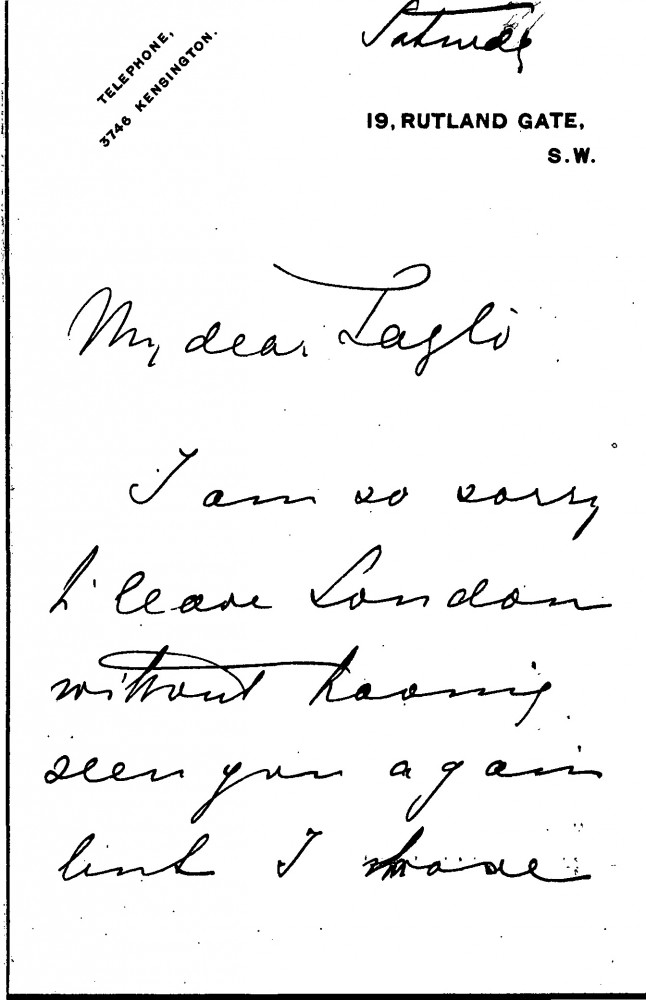 TELEPHONE,
3746 KENSINGTON.
Saturday
19, RUTLAND GATE,
S.W.
My dear Laszlo
I am so sorry
to leave London
without having
seen you again
but I have